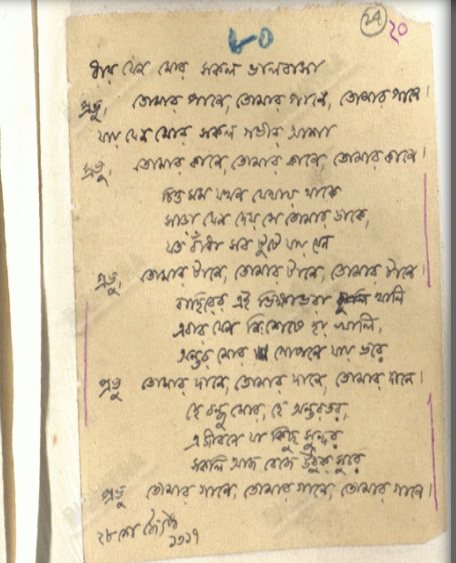 ৮০
২৪
২০
ধায় যেন মোর সকল ভালবাসা
প্রভু, তোমার পানে, তোমার পানে, তোমার পানে।
যায় যেন মোর সকল গভীর আশা
প্রভু, তোমার কানে, তোমার কানে, তোমার কানে।
চিত্ত মম যখন যেথায় থাকে
সাড়া যেন দেয় সে তোমার ডাকে,
যত বাঁধা সব টুটে যায় যেন
প্রভু, তোমার টানে, তোমার টানে, তোমার টানে।
বাহিরের এই ভিক্ষাভরা থালি
এবার যেন নিঃশেষে হয় খালি,
অন্তর মোর গোপনে যায় ভরে
প্রভু তোমার দানে, তোমার দানে, তোমার দানে।
হে বন্ধু মোর, হে অন্তরতর,
এ জীবনে যা কিছু সুন্দর
সকলি আজ বেজে উঠুক সুরে
প্রভু তোমার গানে, তোমার গানে, তোমার গানে।
২৮শে জ্যৈষ্ঠ
১৩১৭